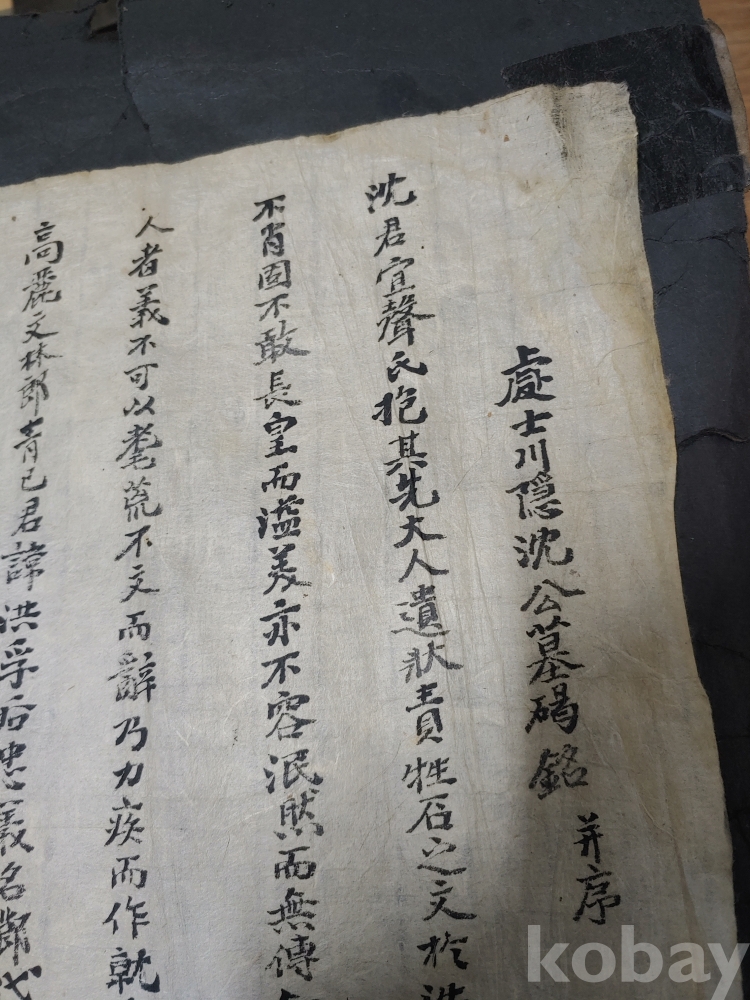 處士川隠沈公墓碣銘 并序
沈君宜聲氏抱其先大人遺狀責牲石之文於
不肖固不敢長皇而溢美亦不容泯然而無傳
人者義不可以耄荒不文而辭乃力疾而作就
高麗文林郎青己君諱洪孚后忠義名節代
kobay